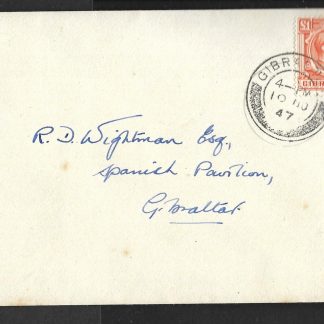 £1
GIBRA
GIBRA
4-PM
10 JU
47
R. D. Wightman Esq.,
Spanish Pavilion,
Gibraltar.